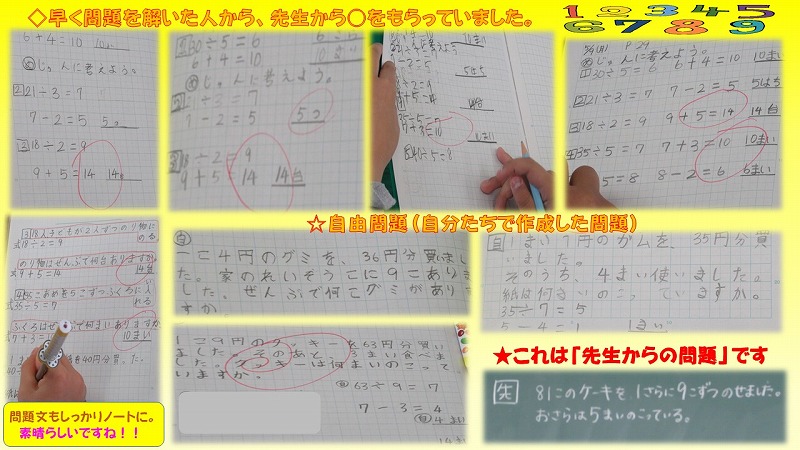 ◇早く問題を解いた人から、先生から〇をもらっていました。
1 2 3 4 5
6 7 8 9
6＋4＝10 10
じゅんに考えよう。
2 21÷3＝7
7－2＝5 5つ
3 18÷2＝9
9＋5＝14 14
30÷5＝6
6＋4＝10 10まい
じゅんに考えよう。
÷3＝7
7－2＝5 5つ
3 18÷2＝9
9＋5＝14 14台
10まい
7－2＝5
5＝14
35÷5＝7
7＋3＝10
5 40÷5＝8
P.29
じゅんに考えよう。
1 30÷5＝6 6＋4＝10 10まい
2 21÷3＝7 7－2＝5 5はち
3 18÷2＝9 9＋5＝14 14台
4 35÷5＝7 7＋3＝10 10まい
5＝8 8－2＝6 6まい
3 18人子どもが2人ずつのり物に
式18÷2＝9 のる
のり物はぜんぶで何台ありますか。
式9＋5＝14 14台
式35÷5＝7
ふくろはぜんぶで何まいありますか
7＋3＝10 10まい
を40円分買
問題文もしっかりノートに。
素晴らしいですね！！
☆自由問題（自分たちで作成した問題）
自
一こ4円のグミを、36円分買いまし
た。家のれいぞうこに9こありま
した。ぜんぶで何こグミがありま
すか。
自 1まい7円のガムを、35円分買
いました。
そのうち、4まい使いました。
紙は何まいのこっていますか。
35÷7＝5
5－4＝1 1まい
1こ9円のクッキーを63円分買い
ました。そのあと、3まい食べま
した。クッキーは何まいのこって
いますか。
63÷9＝7
7－3＝4
4まい
★これは「先生からの問題」です
先 81このケーキを1さらに9こずつのせました。
おさらは5まいのこっている。